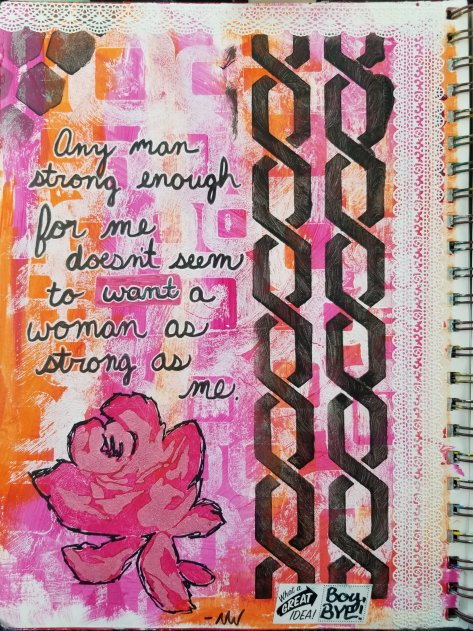 Any man
strong enough
for me
doesnt seem
to want a
woman as
strong as
me.
What a
GREAT
IDEA!
Boy,
BYE!
-NW